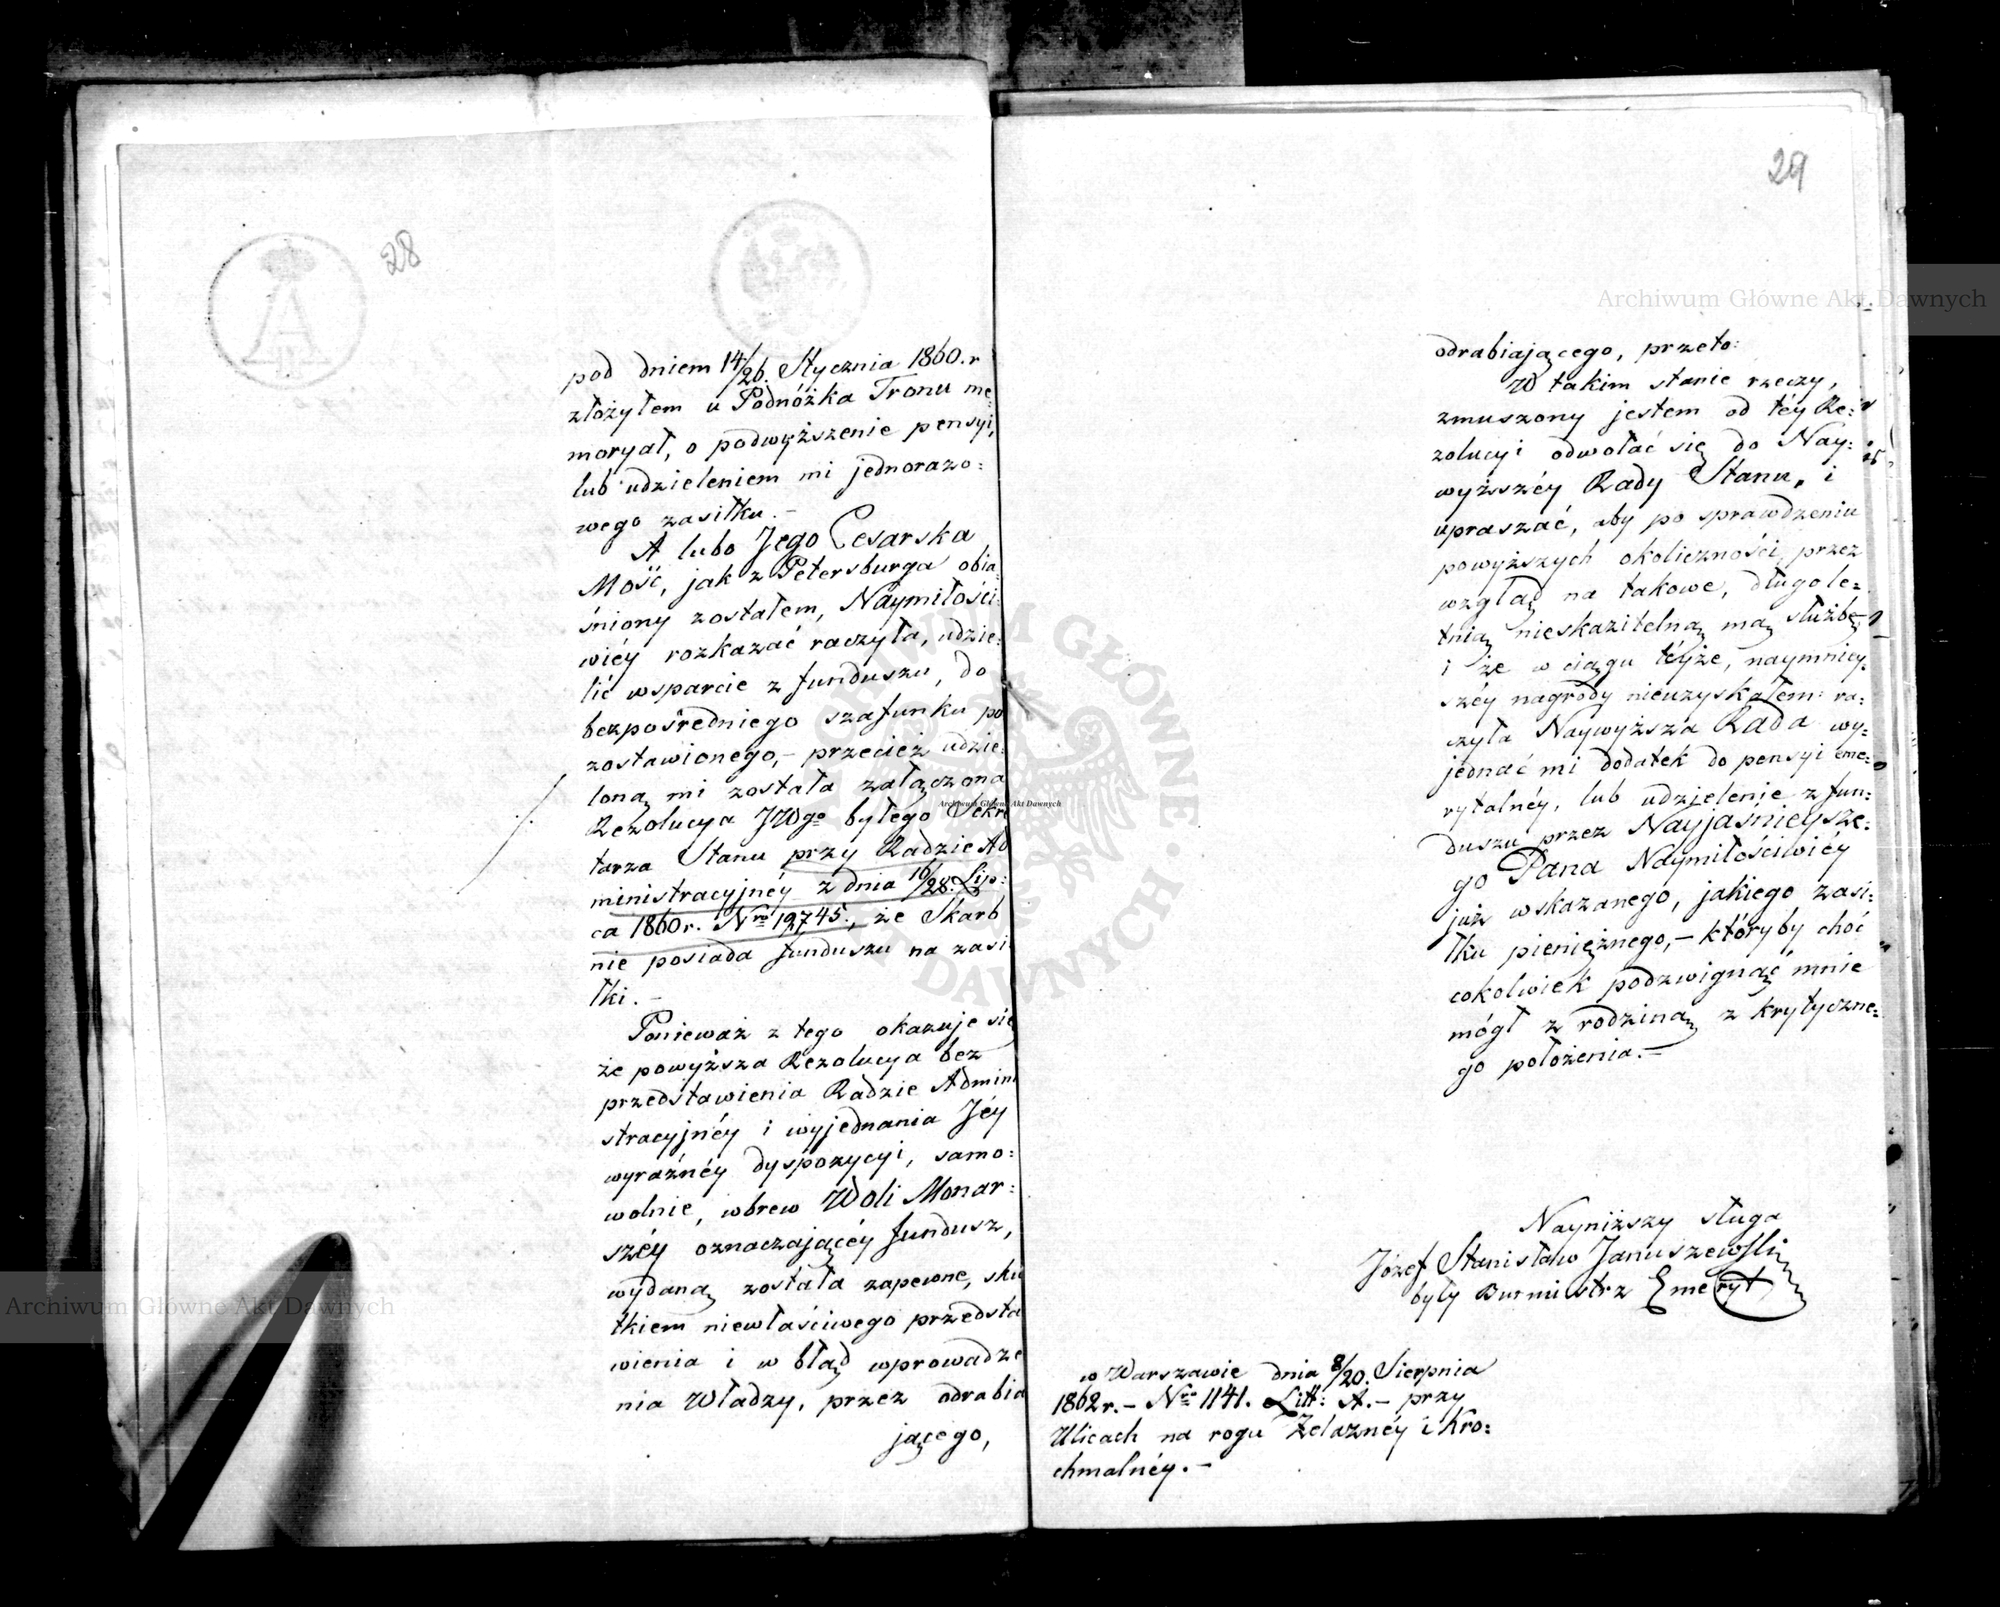 28
pod dniem 14/26. Stycznia 1860. r
złożyłem u Podnóżka Tronu me=
moryał, o podwyższenie pensyi,
lub udzieleniem mi jednorazo=
wego zasiłku. –
A lubo Jego Cesarska
Mość, jak z Petersburga obia=
śniony zostałem, Naymiłości=
wiéy rozkazać raczyła, udzie=
lić wsparcie z funduszu, do
bezpośredniego szafunku po
zostawionego, – przecież udzie=
loną mi została załączona
Rezolucya JWgo byłego Sekre
tarza Stanu przy Radzie Ad
ministracyjnéy z dnia 16/28. Lip=
ca 1860 r. Nro 19,745., że Skarb
nie posiada funduszu na zasi
łki. –
Ponieważ z tego okazuje się
że powyższa Rezolucya bez
przedstawienia Radzie Admini
stracyjnéy i wyjednania Jéy
wyraźnéy dyspozycyi, samo=
wolnie, wbrew Woli Monar=
széy oznaczającéy fundusz,
wydaną została zapewne, sku
tkiem niewłaściwego przedsta
wienia i w błąd wprowadze
nia Władzy, przez odrabia
jącego,
29
odrabiającego, przeto:
W takim stanie rzeczy,
zmuszony jestem od téy Re=
zolucyi odwołać się do Nay=
wyższéy Rady Stanu, i
upraszać, aby po sprawdzeniu
powyższych okoliczności, przez
wzgląd na takowe, długole=
tnią nieskazitelną mą służbę
i że w ciągu téyże, naymniey=
széy nagrody nieuzyskałem: ra=
czyła Naywyższa Rada wy=
jednać mi dodatek do pensyi eme=
rytalnéy, lub udzielenie z fun=
duszu przez Nayjaśnieysze=
go Pana Naymiłościwiéy
już wskazanego, jakiego zasi=
łku pieniężnego, – któryby choć
cokolwiek podzwignąć mnie
mógł z rodziną z krytyczne=
go położenia. –
Nayniższy sługa
Józef Stanisław Januszewski
były Burmistrz Emeryt
w Warszawie dnia 8/20. Sierpnia
1862 r. – Nro 1141. Litt: A. – przy
Ulicach na rogu Żelaznéy i Kro=
chmalnéy. –
Archiwum Główne Akt Dawnych
Archiwum Główne Akt Dawnych
Archiwum Główne Akt Dawnych